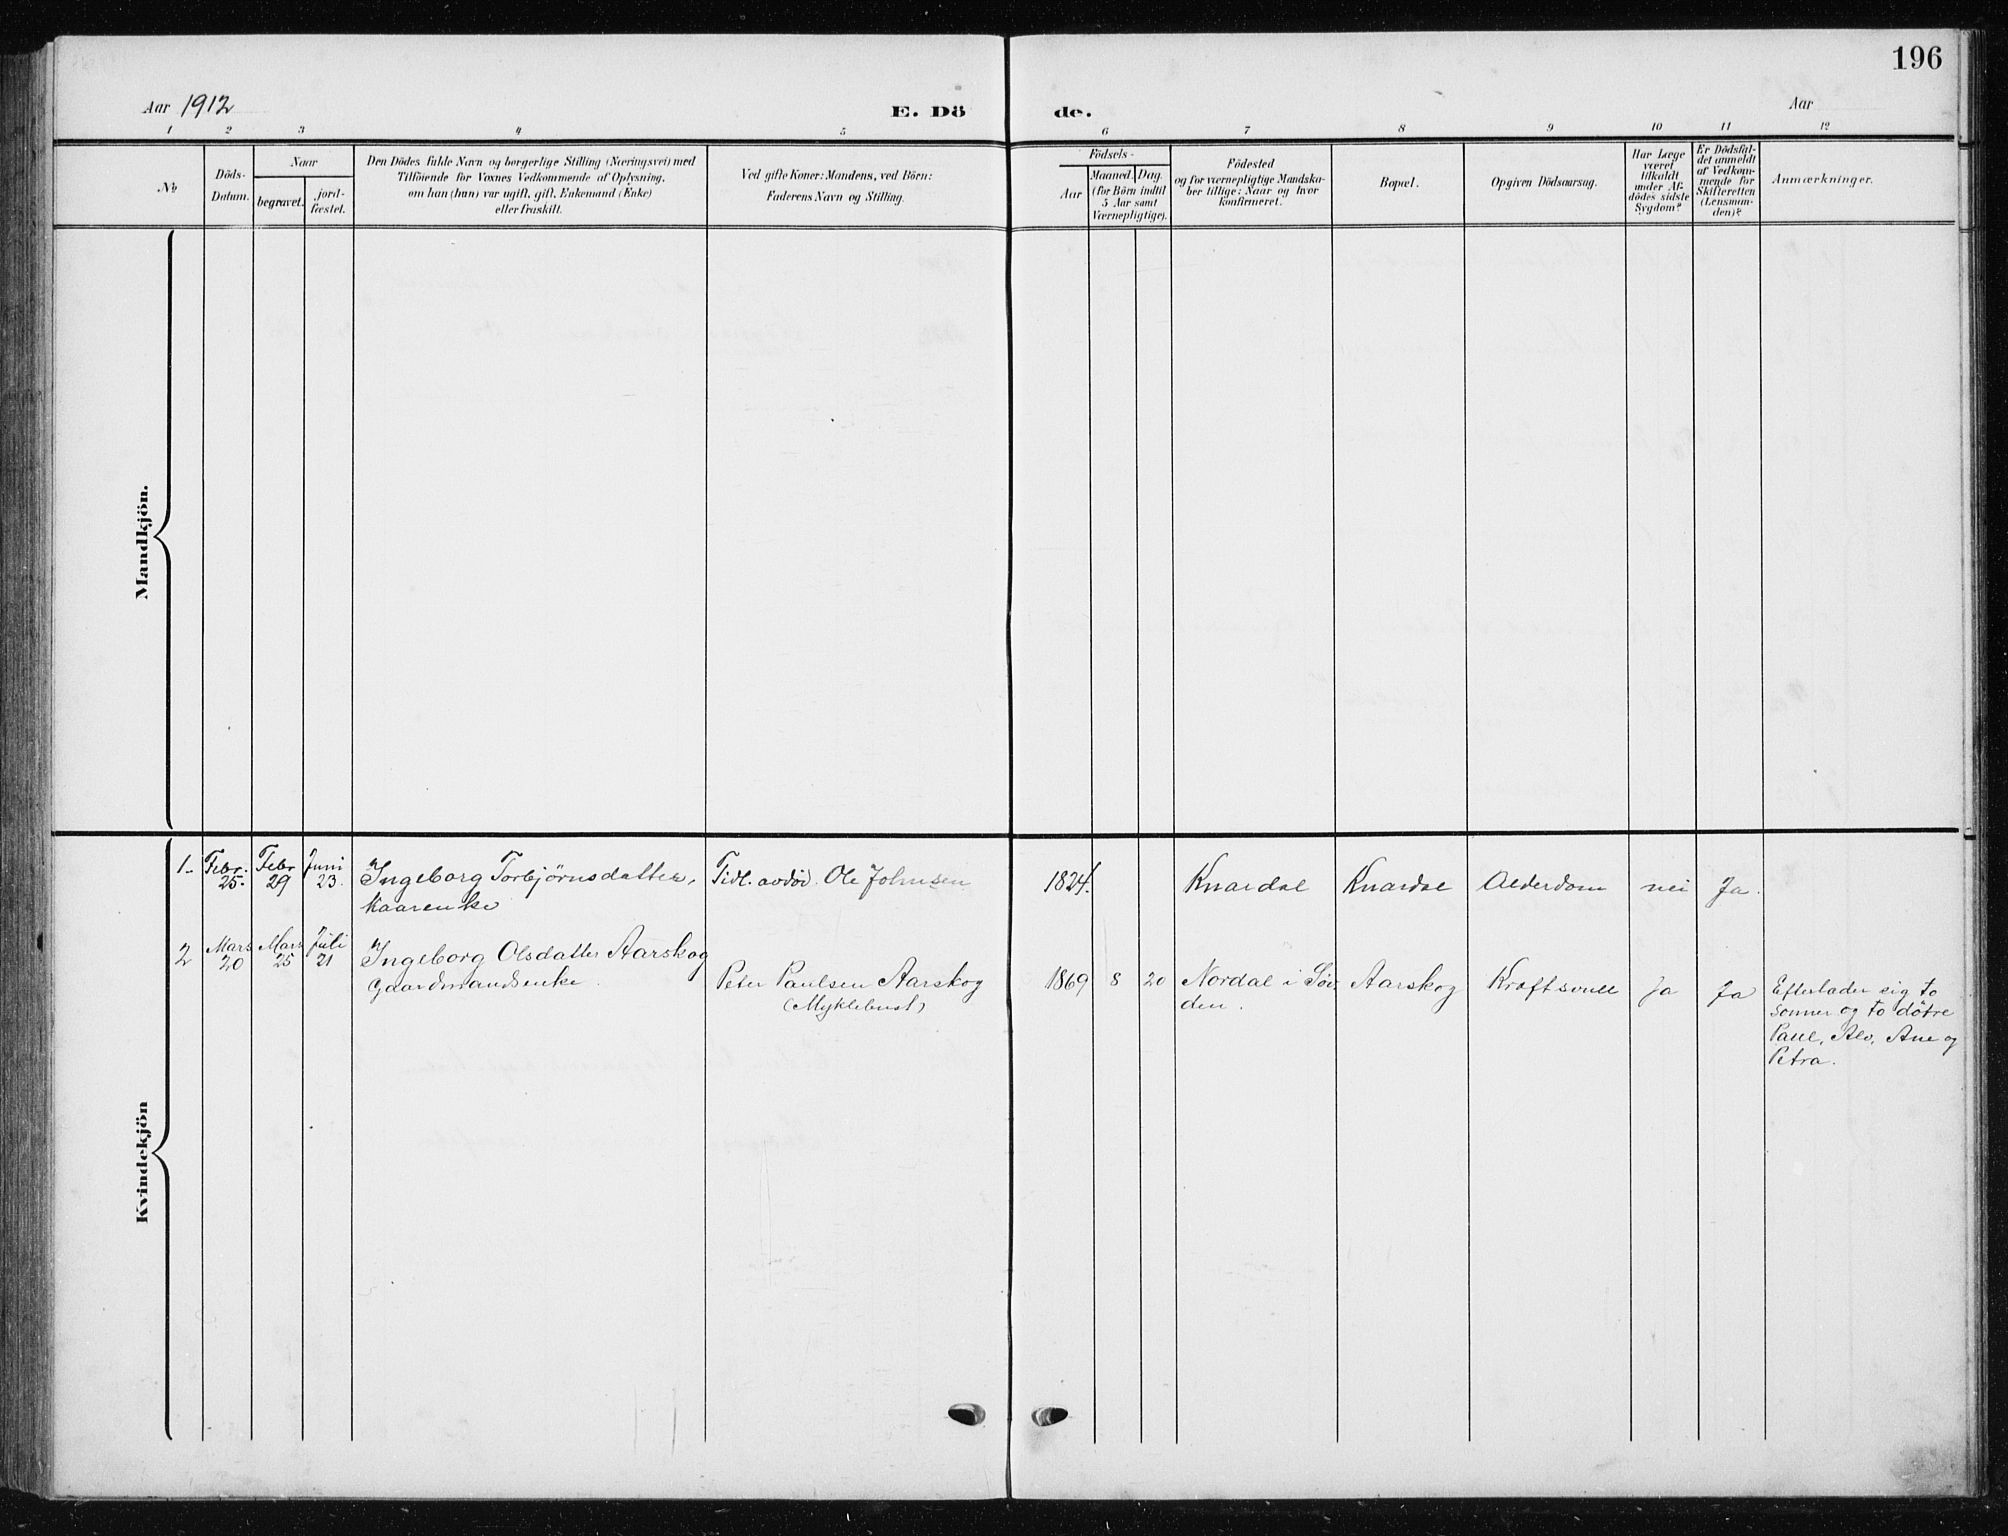 196
Aar 1912
E. Dö
de.
Aar
1 2 3 4 5 6 7 8 9 10 11 12
No
Döds-
Datum.
Naar
begravet.
jord-
fæstet.
Den Dödes fulde Navn og borgerlige Stilling (Næringsvei) med
Tilföiende for Voxnes Vedkommende af Oplysning,
om han (hun) var ugift, gift, Enkemand (Enke)
eller fraskilt.
Ved gifte Koner: Mandens, ved Börn:
Faderens Navn og Stilling.
Födsels-
Aar
Maaned.
Dag.
(for Börn indtil
5 Aar samt
Værnepligtige).
Födested
og for værnepligtige Mandska-
ber tillige: Naar og hvor
konfirmeret.
Bopæl.
Opgiven Dödsaarsag.
Har Læge
været
tilkaldt
under Af-
dödes sidste
Sygdom?
Er Dödsfal-
det anmeldt
af Vedkom-
mende for
Skifteretten
(Lensman-
den)?
Anmærkninger.
Mandkjön.
Kvindekjön
1- Febr. 25. Febr 29 Juni 23. Ingeborg Torbjørnsdatter, Tidl. avdød. Ole Johnsen 1824. Knardal Knardal Alderdom nei Ja.
Kaarenke
2 Mars 20 Mars 25 Juli 21 Ingeborg Olsdatter Aarskog
Gaardmandsenke. Peter Paulsen Aarskog 1869 8 20 Nordal i Søv Aarskog Kræftsvull Ja Ja Efterlader sig to
(Myklebust) den. sønner og to døtre
Paul, Alv, Ane og
Petra.